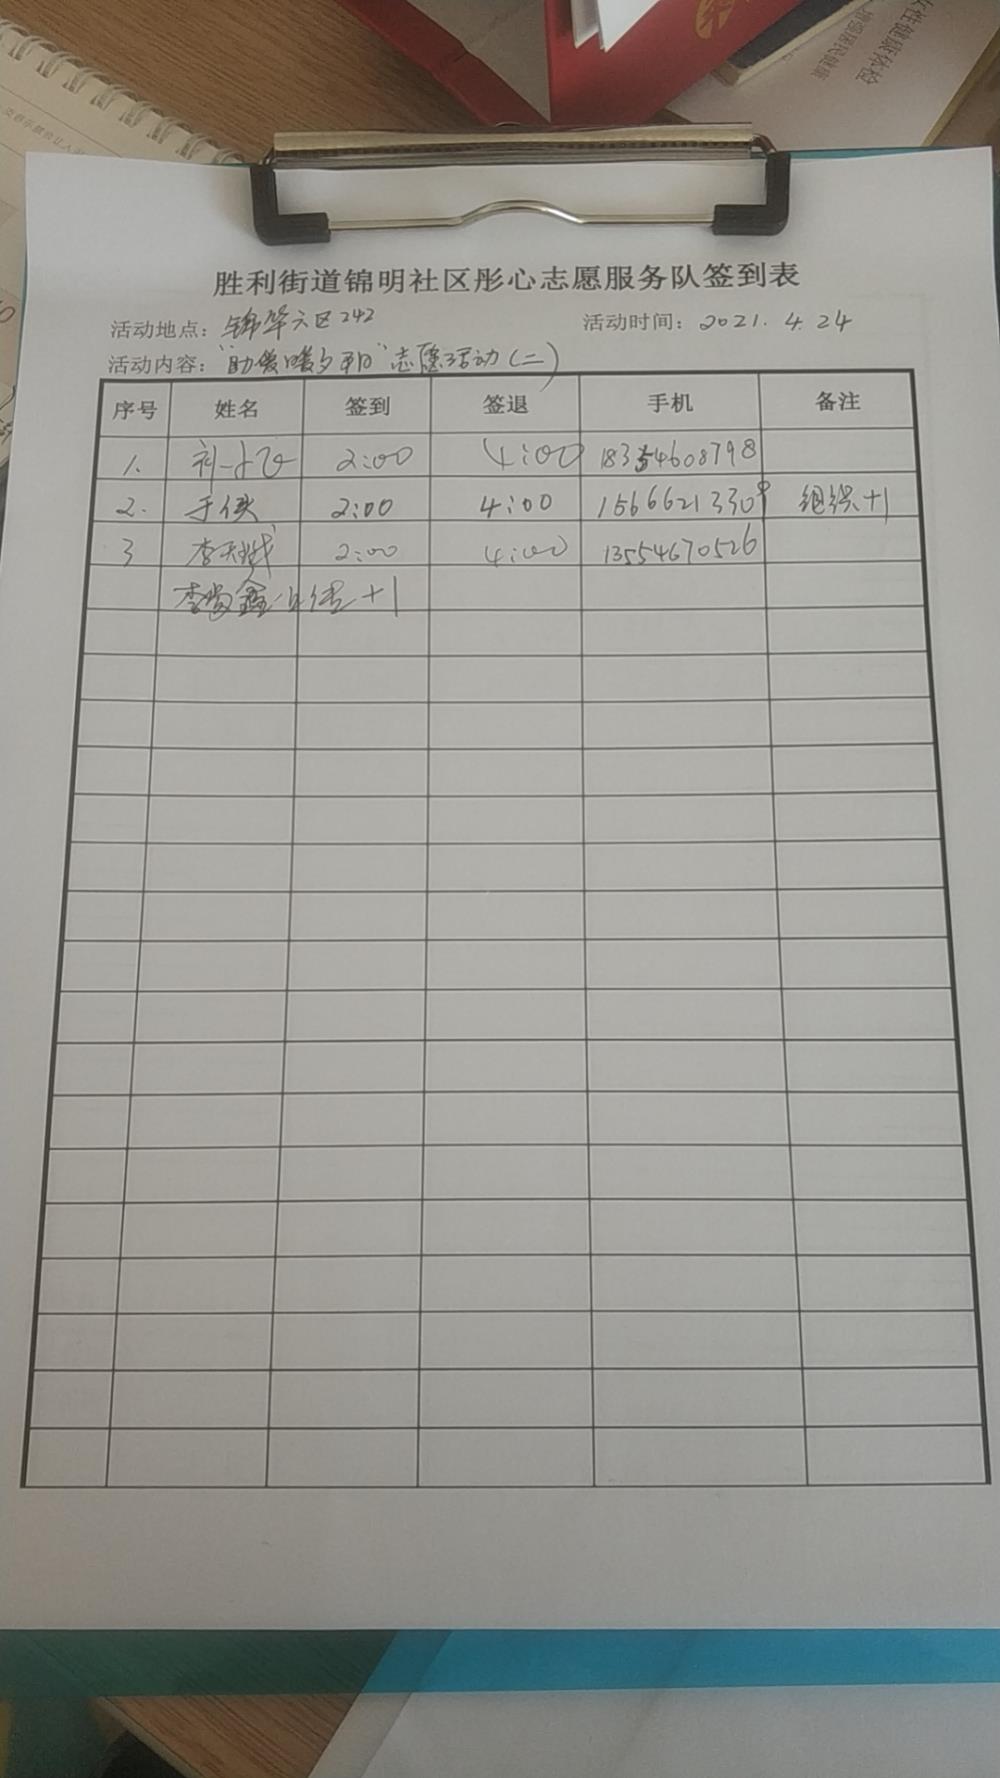 女性健康体检
增强居民健康
胜利街道锦明社区彤心志愿服务队签到表
活动地点：锦华六区242 活动时间：2021.4.24
活动内容："助餐暖夕阳"志愿活动(二)
序号 姓名 签到 签退 手机 备注
1. 2:00 4:00 18354608798
2. 于侠 2:00 4:00 15666213309 组织+1
3 李天斌 2:00 4:00 13554670526
李尚鑫 宣传+1